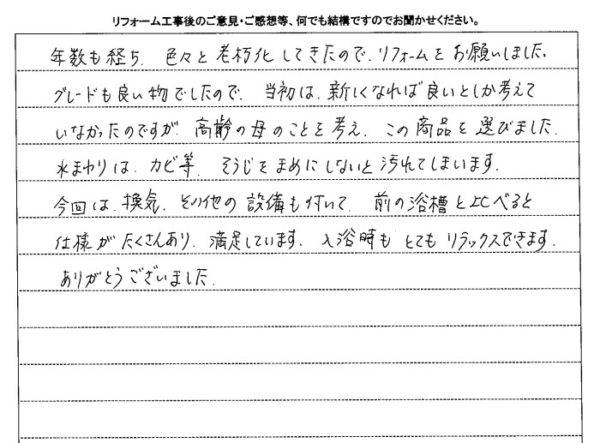 リフォーム工事後のご意見・ご感想等、何でも結構ですのでお聞かせください。
年数も経ち、色々と老朽化してきたので、リフォームをお願いしました。
グレードも良い物でしたので、当初は、新しくなれば良いとしか考えて
いなかったのですが、高齢の母のことを考え、この商品を選びました。
水まわりは、カビ等、そうじをまめにしないと汚れてしまいます。
今回は、換気、その他の設備も付いて、前の浴槽と比べると
仕様がたくさんあり、満足しています。入浴時もとてもリラックスできます。
ありがとうございました。